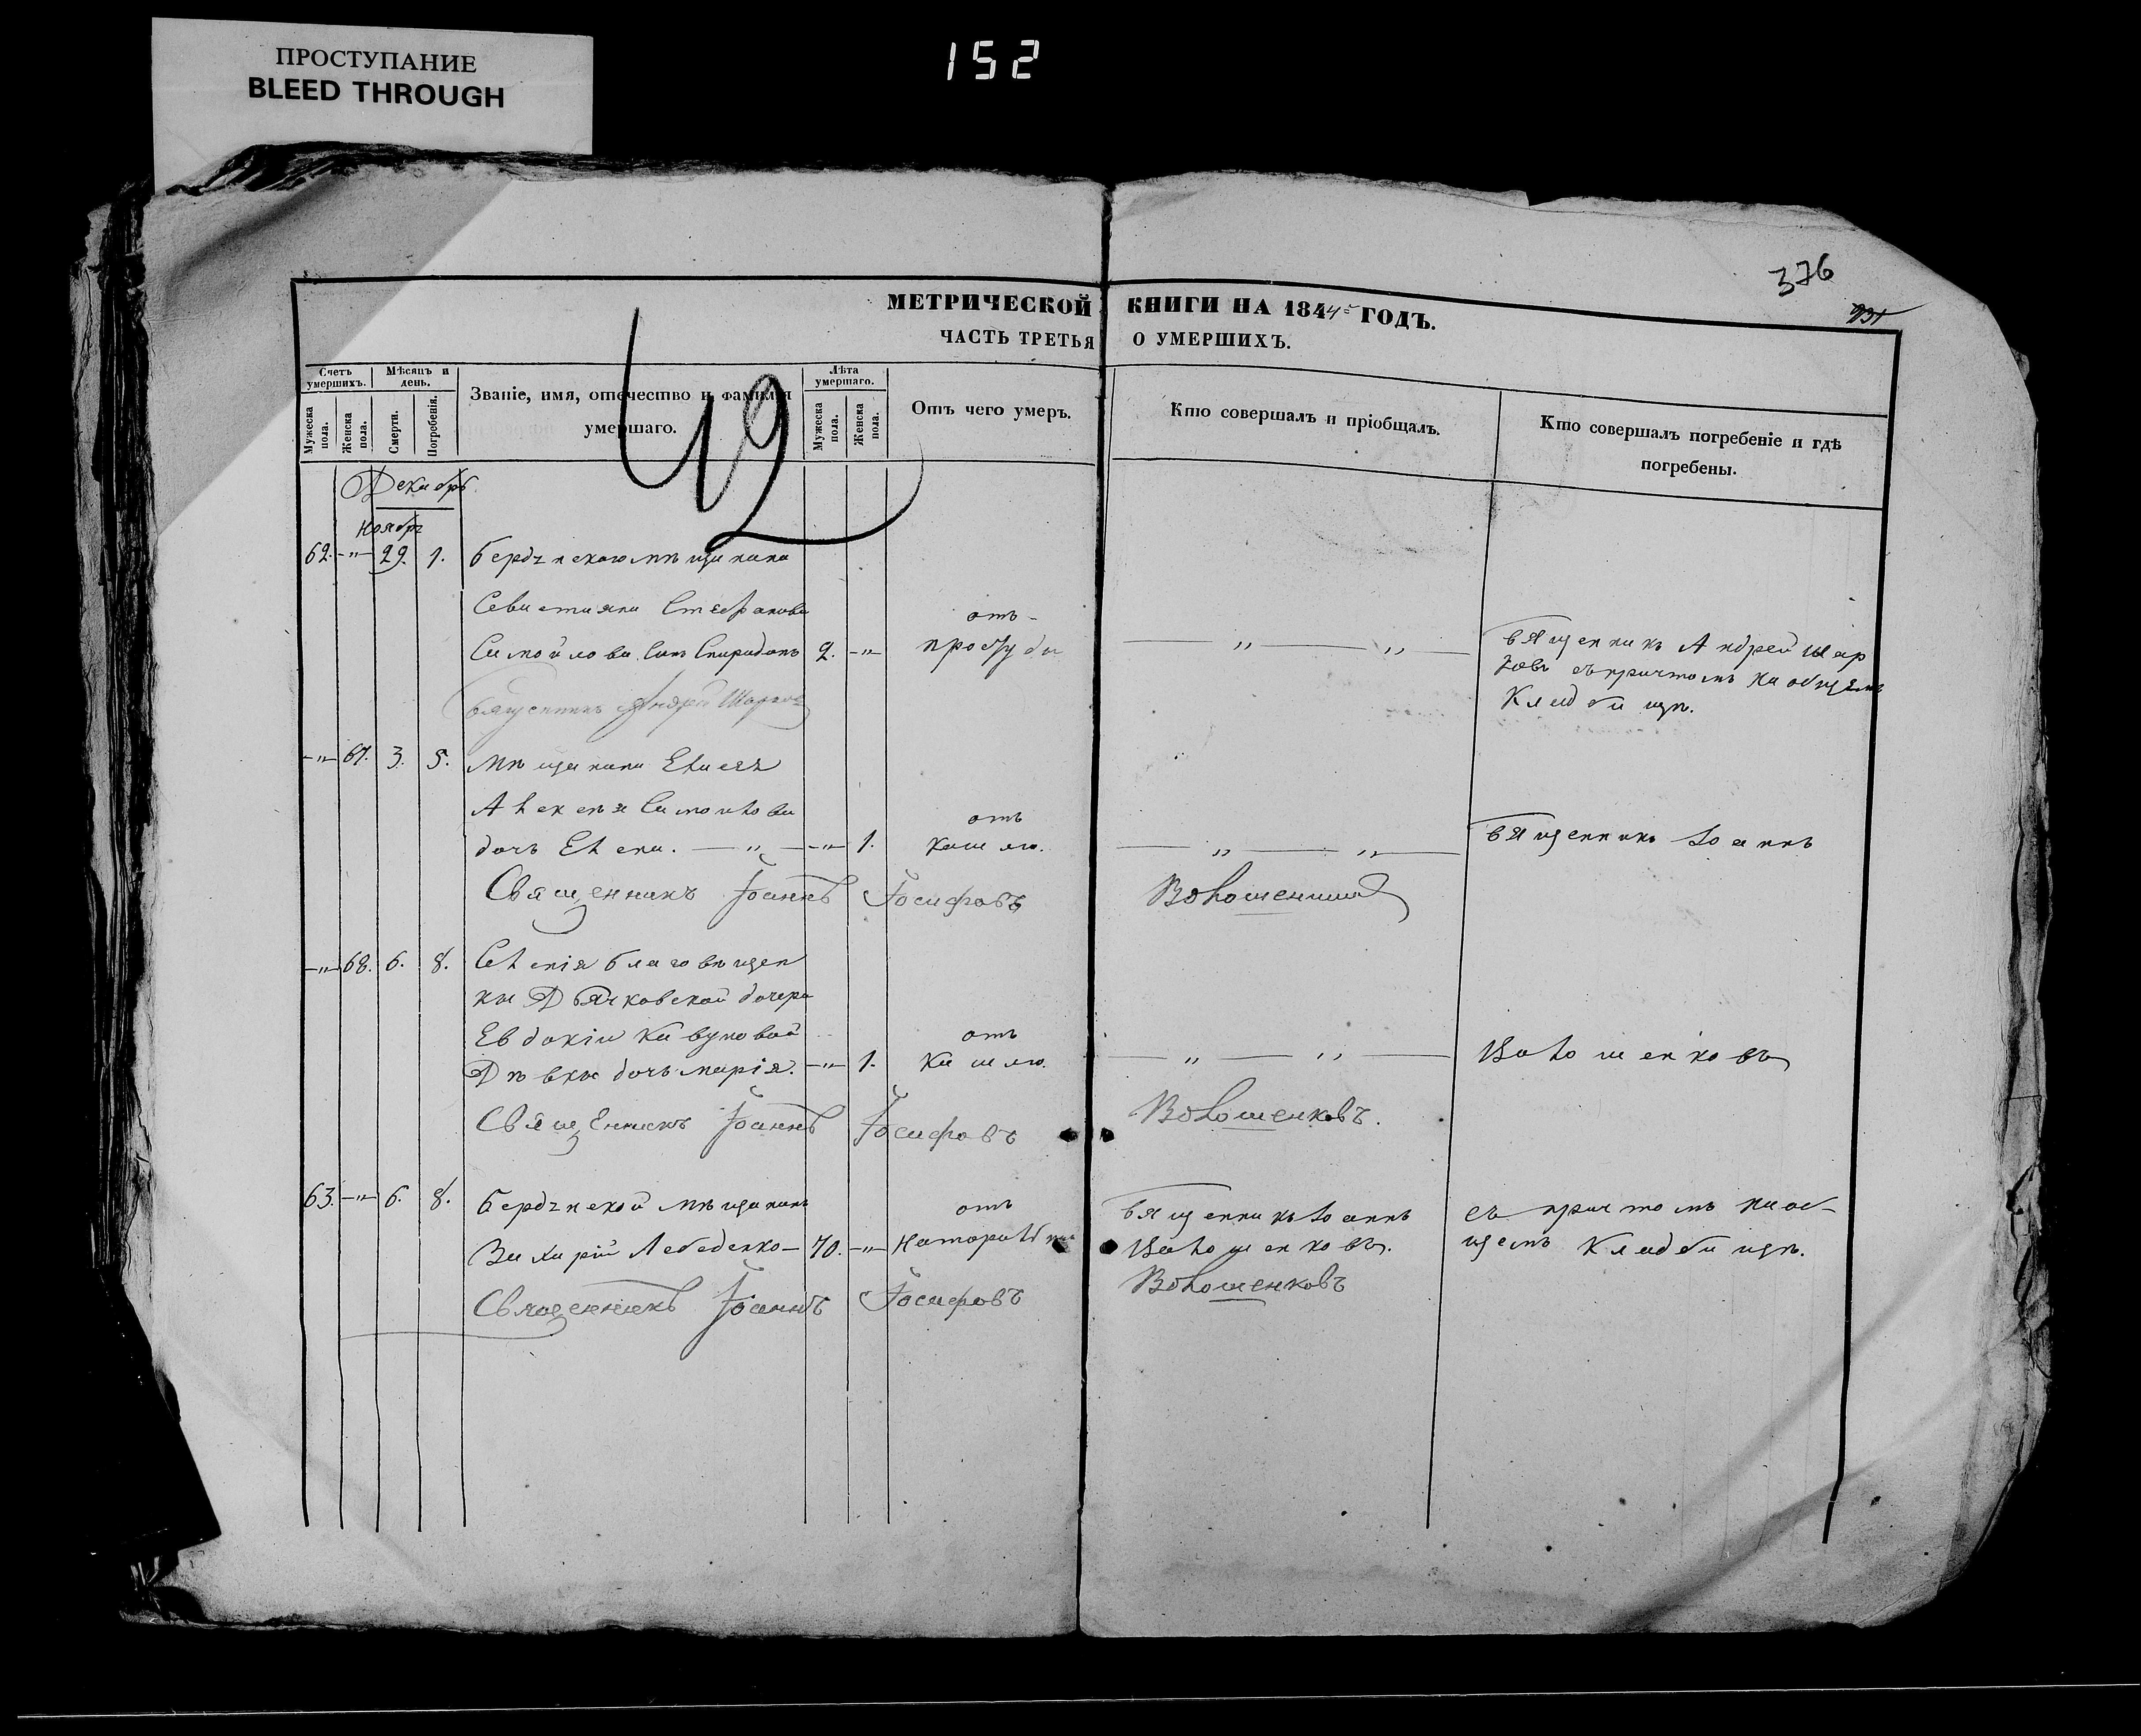 ПРОСТУПАНИЕ
BLEED THROUGH
152
376
МЕТРИЧЕСКОЙ КНИГИ НА 1844 ГОДЪ.
ЧАСТЬ ТРЕТЬЯ О УМЕРШИХЪ.
Счетъ умершихъ.
Мужеска пола.
Женска пола.
Мѣсяцъ и день.
Смерти.
Погребенія.
Званіе, имя, отечество и фамилія умершаго.
Лѣта умершаго.
Мужеска пола.
Женска пола.
Отъ чего умеръ.
Кто совершалъ и пріобщалъ.
Кто совершалъ погребеніе и гдѣ погребены.
49
Декабрь
Ноябрь
62. -"- 29. 1. мѣщанина
Севастияна Стефанова отъ
Самойлова Сынъ Спиридонъ 2. -"- простуды — " — " — Священникъ Андрей Шар
ковъ съ причтомъ на общемъ
Кладбищѣ.
Священникъ Андрей
-"- 67. 3. 5. Мѣщанина Елисея
Алексѣя Самойлова отъ
дочь Елена. — " — -"- 1. кашлю. — " — " — Священникъ Іоаннъ
Священникъ Іоаннъ Іосифовъ
-"- 68. 6. 8. Селенія Благовѣщен
ки Дьячковской дочери
Евдокіи отъ
Дѣвки дочь Марія. -"- 1. Кашлю. — " — " — Волошенковъ
Священникъ Іоаннъ Іосифовъ Волошенковъ.
63. -"- 6. 8. мѣщанинъ отъ Священникъ Іоаннъ съ причтомъ на об-
Захарій Лебеденко — 70. -"- Волошенковъ. щемъ Кладбищѣ.
Священникъ Іоаннъ Іосифовъ Волошенковъ